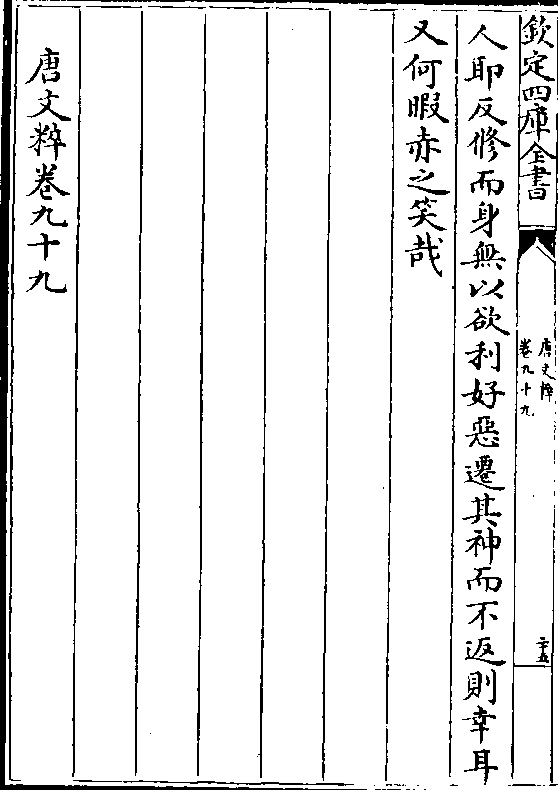 欽定四庫全書
唐文粹
卷九十九
二十五
人耶反修而身無以欲利好惡遷其神而不返則幸耳
又何暇赤之笑哉
唐文粹卷九十九